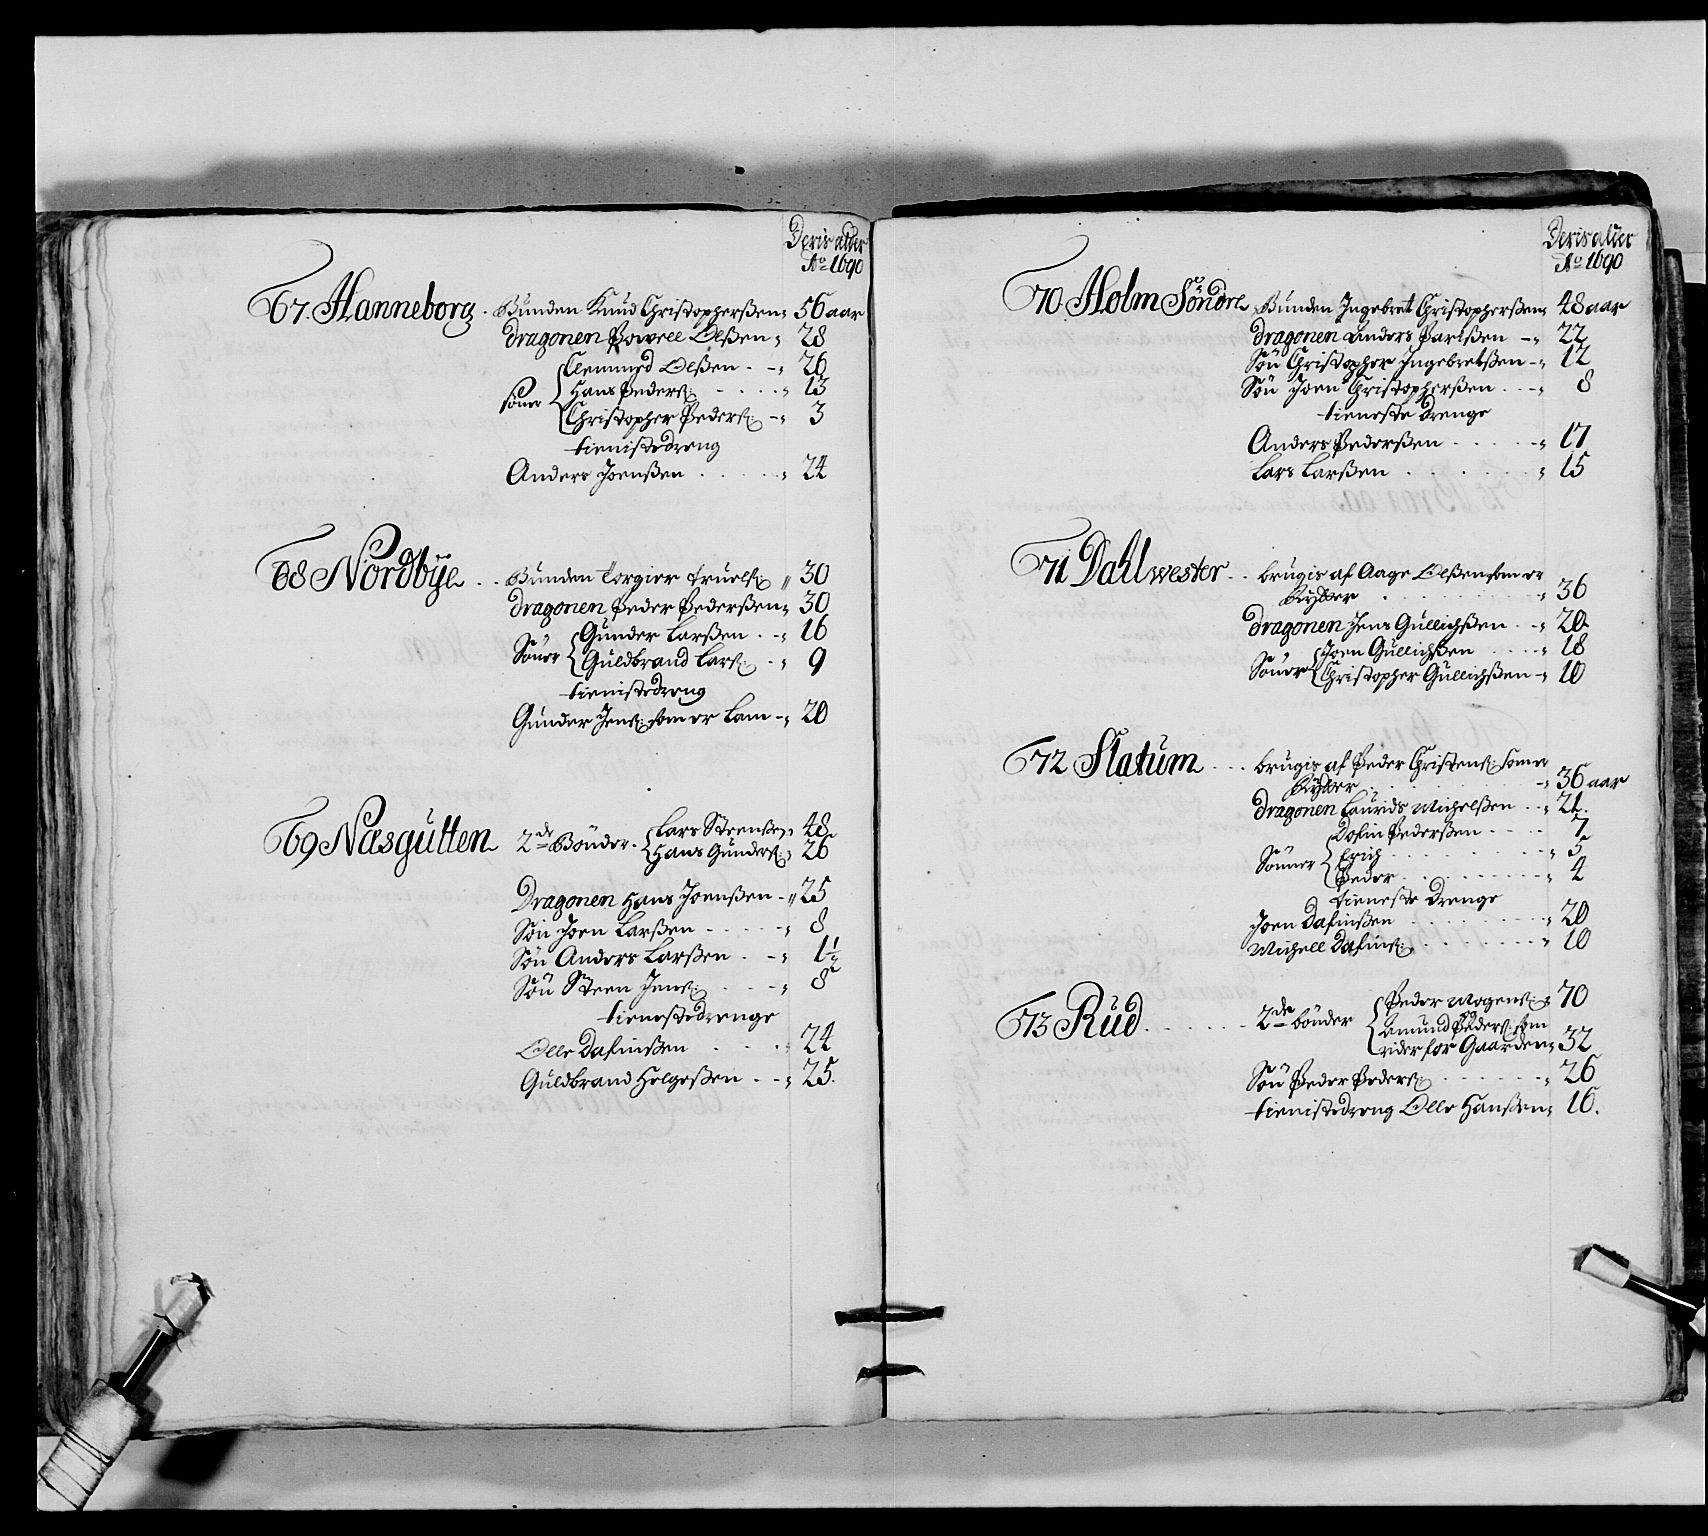 Deris alder
Ao 1690
67. Hanneborg . Bunden Knud Christophersßen 56 aar
dragonen Powell Olßen 28
Söner { Clemmed Olßen 26
Hans Peders: 13
Christopher Peders: 3
tienistedreng
Anders Joenßen 24
68 Nordbÿe . . Bunden Torgier Truels: 30
dragonen Peder Pederßen 30
Söner { Gunder Larßen 16
Guldbrand Lars: 9
tienistedreng
Gunder Jens: som er Lam 20
69 Næsgutten 2de Bönder { Lars Steenßen 48
Hans Gunders: 26
Dragonen Hans Joenßen 25
Sön Joen Larßen 8
Sön Anders Larßen 1½
Sön Steen Jens: 8
tienestedrenge
Olle Dafinßen 24
Guldbrand Helgeßen 25.
Deris alder
Ao 1690
70. Holm Söndre Bunden Ingebret Christopherßen 48 aar
dragonen Anders Parlßen 22
Sön Christopher Ingebretßen 12
Sön Joen Christopherßen 8
tieneste Drenge
Anders Pederßen 17
Lars Larßen 15
71 Dahl wester . . brugis af Aage Olßen som er
Rytter 36
dragonen Jens Gullichßen 20.
Söner { Joen Gullichßen 18
Christopher Gullichßen 10
72 Slatum . . . brugis af Peder Christens: som er
Rytter 36 aar
dragonen Laurids Michelßen 21.
Sönner { Dofin Pederßen 7
Erich 5
Peder 4
tieneste Drenge
Joen Dafinßen 20
Michell Dafins: 10
73 Rud 2de bönder { Peder Mogens: 70
og
Amund Peders: som
rider for Gaarden 32
Sön Peder Peders: 26
tienistedreng Olle Hansßen 16.